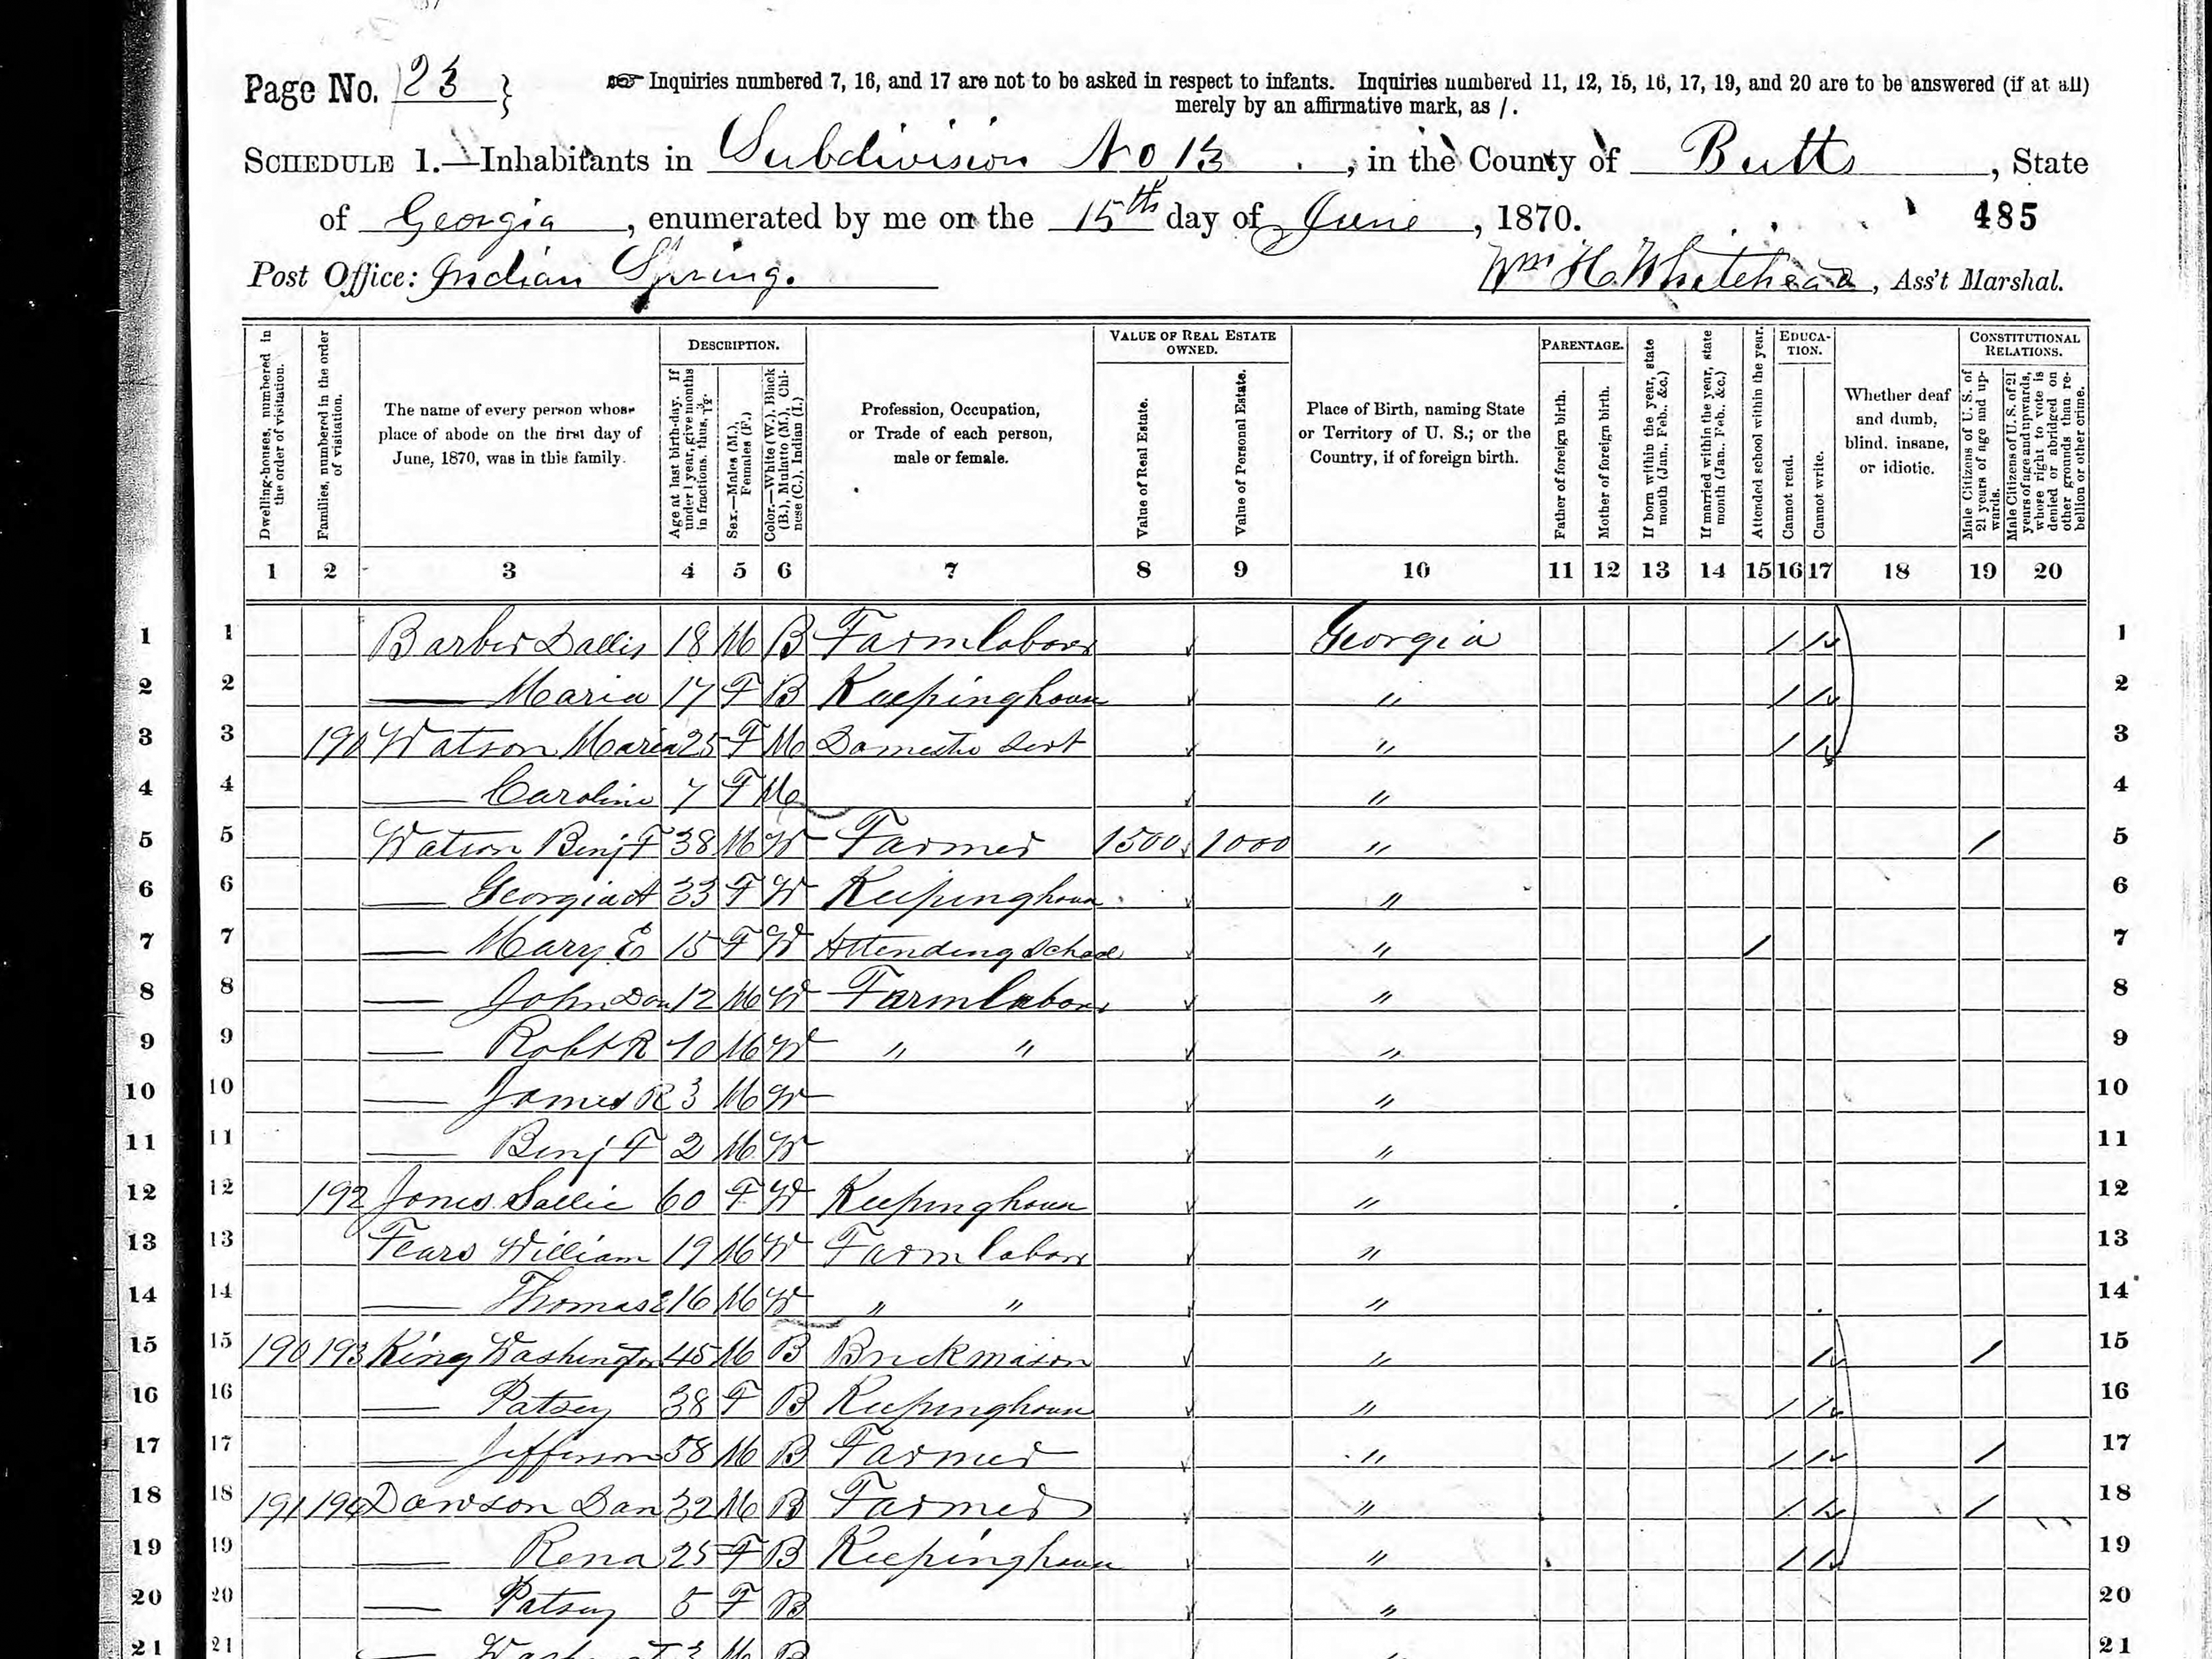 Page No. 23 }
Inquiries numbered 7, 16, and 17 are not to be asked in respect to infants. Inquiries numbered 11, 12, 15, 16, 17, 19, and 20 are to be answered (if at all)
merely by an affirmative mark, as /.
SCHEDULE 1.—Inhabitants in Subdivision No 13, in the County of Butts, State
of Georgia, enumerated by me on the 15th day of June, 1870.
485
Post Office: Indian Spring.
Wm H. Whitehead, Ass't Marshal.
Dwelling-houses, numbered in the order of visitation.
Families, numbered in the order of visitation.
The name of every person whose place of abode on the first day of June, 1870, was in this family.
DESCRIPTION.
Age at last birth-day. If under 1 year, give months in fractions, thus, 3/12.
Sex.—Males (M.), Females (F.)
Color.—White (W.), Black (B.), Mulatto (M.), Chinese (C.), Indian (I.)
Profession, Occupation, or Trade of each person, male or female.
VALUE OF REAL ESTATE OWNED.
Value of Real Estate.
Value of Personal Estate.
Place of Birth, naming State or Territory of U. S.; or the Country, if of foreign birth.
PARENTAGE.
Father of foreign birth.
Mother of foreign birth.
If born within the year, state month (Jan., Feb., &c.)
If married within the year, state month (Jan., Feb., &c.)
Attended school within the year.
EDUCATION.
Cannot read.
Cannot write.
Whether deaf and dumb, blind, insane, or idiotic.
CONSTITUTIONAL RELATIONS.
Male Citizens of U. S. of 21 years of age and upwards.
Male Citizens of U. S. of 21 years of age and upwards, whose right to vote is denied or abridged on other grounds than rebellion or other crime.
1 2 3 4 5 6 7 8 9 10 11 12 13 14 15 16 17 18 19 20
1 1 Barber Dallis 18 M B Farm labor Georgia / / 1
2 2 — Maria 17 F B Keeping house " / / 2
3 3 190 Watson Maria 25 F M Domestic Servt " / / 3
4 4 — Caroline 7 F M " 4
5 5 Watson Benj F 38 M W Farmer 1500 1000 " / 5
6 6 — Georgia A 33 F W Keeping house " 6
7 7 — Mary E 15 F W Attending School " / 7
8 8 — John 12 M W Farm labor " 8
9 9 — Robt R 10 M W " " " 9
10 10 — James R 3 M W " 10
11 11 — Benj F 2 M W " 11
12 12 192 Jones Sallie 60 F W Keeping house " 12
13 13 Fears William 19 M W Farm labor " 13
14 14 — Thomas 16 M W " " " 14
15 15 190 193 King Washington 45 M B Brick mason " / / 15
16 16 — Patsey 38 F B Keeping house " / / 16
17 17 — Jefferson 58 M B Farmer " / / / 17
18 18 191 194 Dawson Dan 32 M B Farmer " / / / 18
19 19 — Rena 25 F B Keeping house " / / 19
20 20 — Patsey 5 F B " 20
21 21 — 3 M B 21